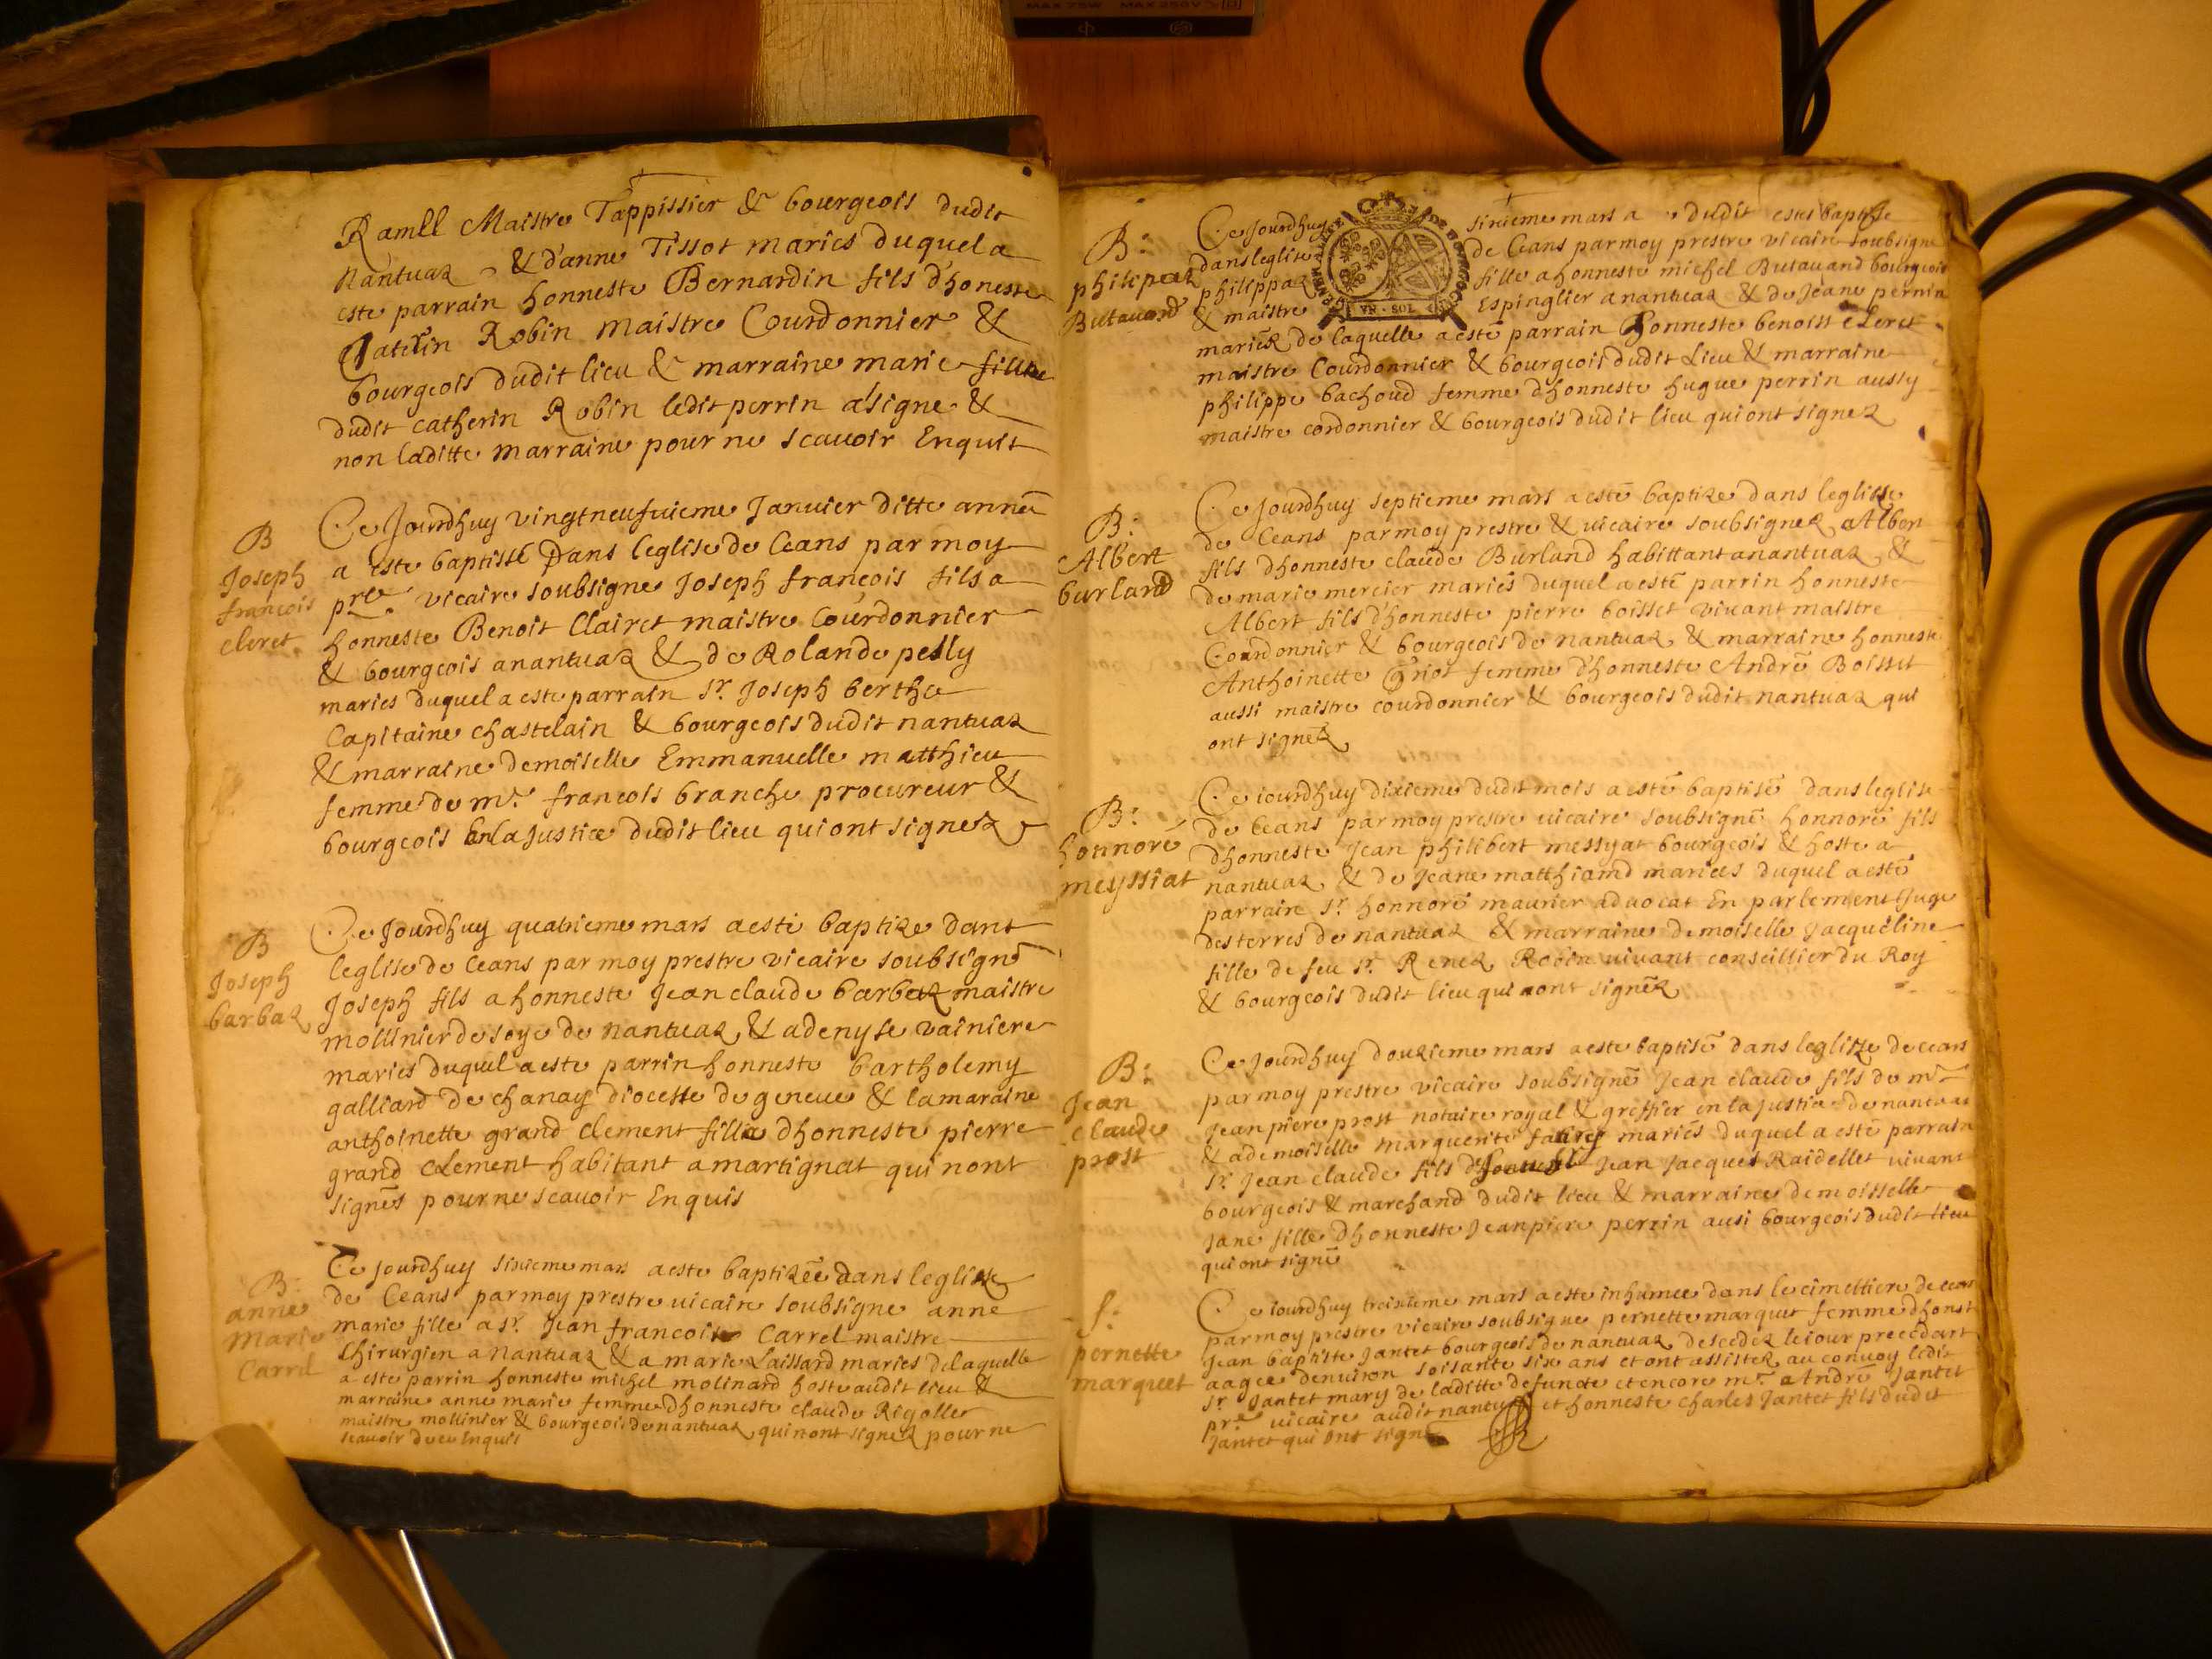 MAX 75W MAX 250V
Ramel Maistre Tappissier & bourgeois dudit
Nantuaz & d'anne Tissot maries duquel a
este parrain honneste Bernardin fils d'honeste
Catelin Robin maistre Courdonnier &
bourgeois dudit lieu & marraine marie fille
dudit catherin Robin ledit perrin a signe &
non laditte marraine pour ne scauoir Enquit
B
Joseph
francois
cleret
Ce Jourdhuy vingt neufuieme Januier ditte année
a este baptissé Dans leglise de Ceans par moy
pre vicaire soubsigne Joseph francois fils a
honneste Benoit Clairet maistre Courdonnier
& bourgeois a nantuaz & de Rolande pesly
maries duquel a este parrain Sr Joseph berthe
Capitaine chastelain & bourgeois dudit nantuaz
& marraine demoiselle Emmanuelle matthieu
femme de mr francois branche procureur &
bourgeois En la Justice dudit lieu qui ont signez
B
Joseph
barbaz
Ce Jourdhuy quatrieme mars a esté baptize dans
leglise de Ceans par moy prestre vicaire soubsigné
Joseph fils a honneste Jean claude barbaz maistre
mollinier de soye de nantuaz & a denyse vainiere
maries duquel a este parrin honneste bartholemy
galliard de chanay diocesse de geneue & la maraine
anthoinette grand clement fille dhonneste pierre
grand clement habitant a martignat qui nont
signés pour ne scauoir Enquis
B:
anne
Marie
Carrel
Ce Jourdhuy sixieme mars a este baptizée dans leglize
de Ceans par moy prestre uicaire soubsigne anne
marie fille a sr Jean francois Carrel maistre
Chirurgien a Nantuaz & a marie Laissard maries delaquelle
a este parrin honneste michel molinard hoste audit lieu &
marraine anne marie femme dhonneste claude Rigollet
maistre mollinier & bourgeois de nantuaz qui nont signez pour ne
scauoir de ce Enquis
B:
philipaz
Butauand
Ce Jourdhuy sixieme mars a dudit estes baptise
dans leglise de Ceans par moy prestre vicaire soubsigne
philippaz fille a honneste michel Butauand bourgeois
& maistre Espinglier a nantuaz & de Jeane pernin
VN·SOL
mariez de laquelle a esté parrain honneste benoist cleret
maistre Courdonnier & bourgeois dudit Lieu & marraine
philippe bachoud femme dhonneste hugue perrin aussy
maistre cordonnier & bourgeois dudit lieu qui ont signez
B:
Albert
burland
Ce Jourdhuy septieme mars a esté baptize dans leglise
de Ceans par moy prestre & uicaire soubsignez Alber
fils dhonneste claude Burland habittant a nantuaz &
de marie mercier mariés duquel a esté parrin honneste
Albert fils dhonneste pierre boisset viuant maistre
Courdonnier & bourgeois de nantuaz & marraine honneste
Anthoinette Griot femme dhonneste André Boisset
aussi maistre courdonnier & bourgeois dudit nantuaz qui
ont signez
B:
honnoré
meyssiat
Ce iourdhuy dixieme dudit mois a esté baptisé dans leglise
de Ceans par moy prestre uicaire soubsigné honnoré fils
dhonneste Jean philibert messyat bourgeois & hoste a
nantuaz & de Jeane matthiamd mariées duquel a esté
parrain sr honnoré maurier aduocat En parlement Juge
des terres de nantuaz & marraine demoiselle Jacquéline
fille de feu sr Renez Robin uiuant conseillier du Roy
& bourgeois dudit lieu qui aont signéz
B:
Jean
claude
prost
Ce Jourdhuy douzieme mars a este baptisé dans leglize de ceans
par moy prestre vicaire soubsigné Jean claude fils de mr
Jean piere prost notaire royal & greffier en la justice de nantuaz
& a demoiselle marguerite mariés duquel a esté parrain
sr Jean claude fils Jean Jacques Raidellet uiuant
bourgeois & marchand dudit lieu & marraine demoisselle
Jane fille dhonneste Jean piere perrin ausi bourgeois dudit lieu
qui ont signé
f:
pernette
marquet
Ce iourdhuy treizieme mars a este inhumee dans le cimettiere de ceans
par moy prestre vicaire soubsigne pernette marquet femme dhonst
Jean baptiste Jantet bourgeois de nantuaz descedez le iour precedant
aagee denuiron soisante six ans et ont assistez au conuoy ledit
sr Jantet mary de laditte defuncte et encore mr André Jantet
pre uicaire audit nantuaz et honneste charles Jantet fils dudit
Jantet qui ont signé